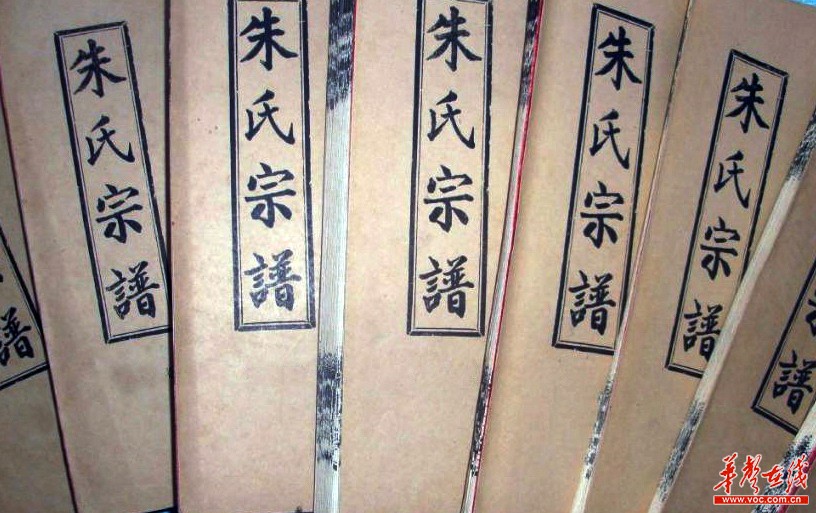 譜
朱氏宗譜
朱氏宗譜
朱氏宗譜
朱氏宗譜
朱氏宗譜
譜
華聲在线
www.voc.com.cn